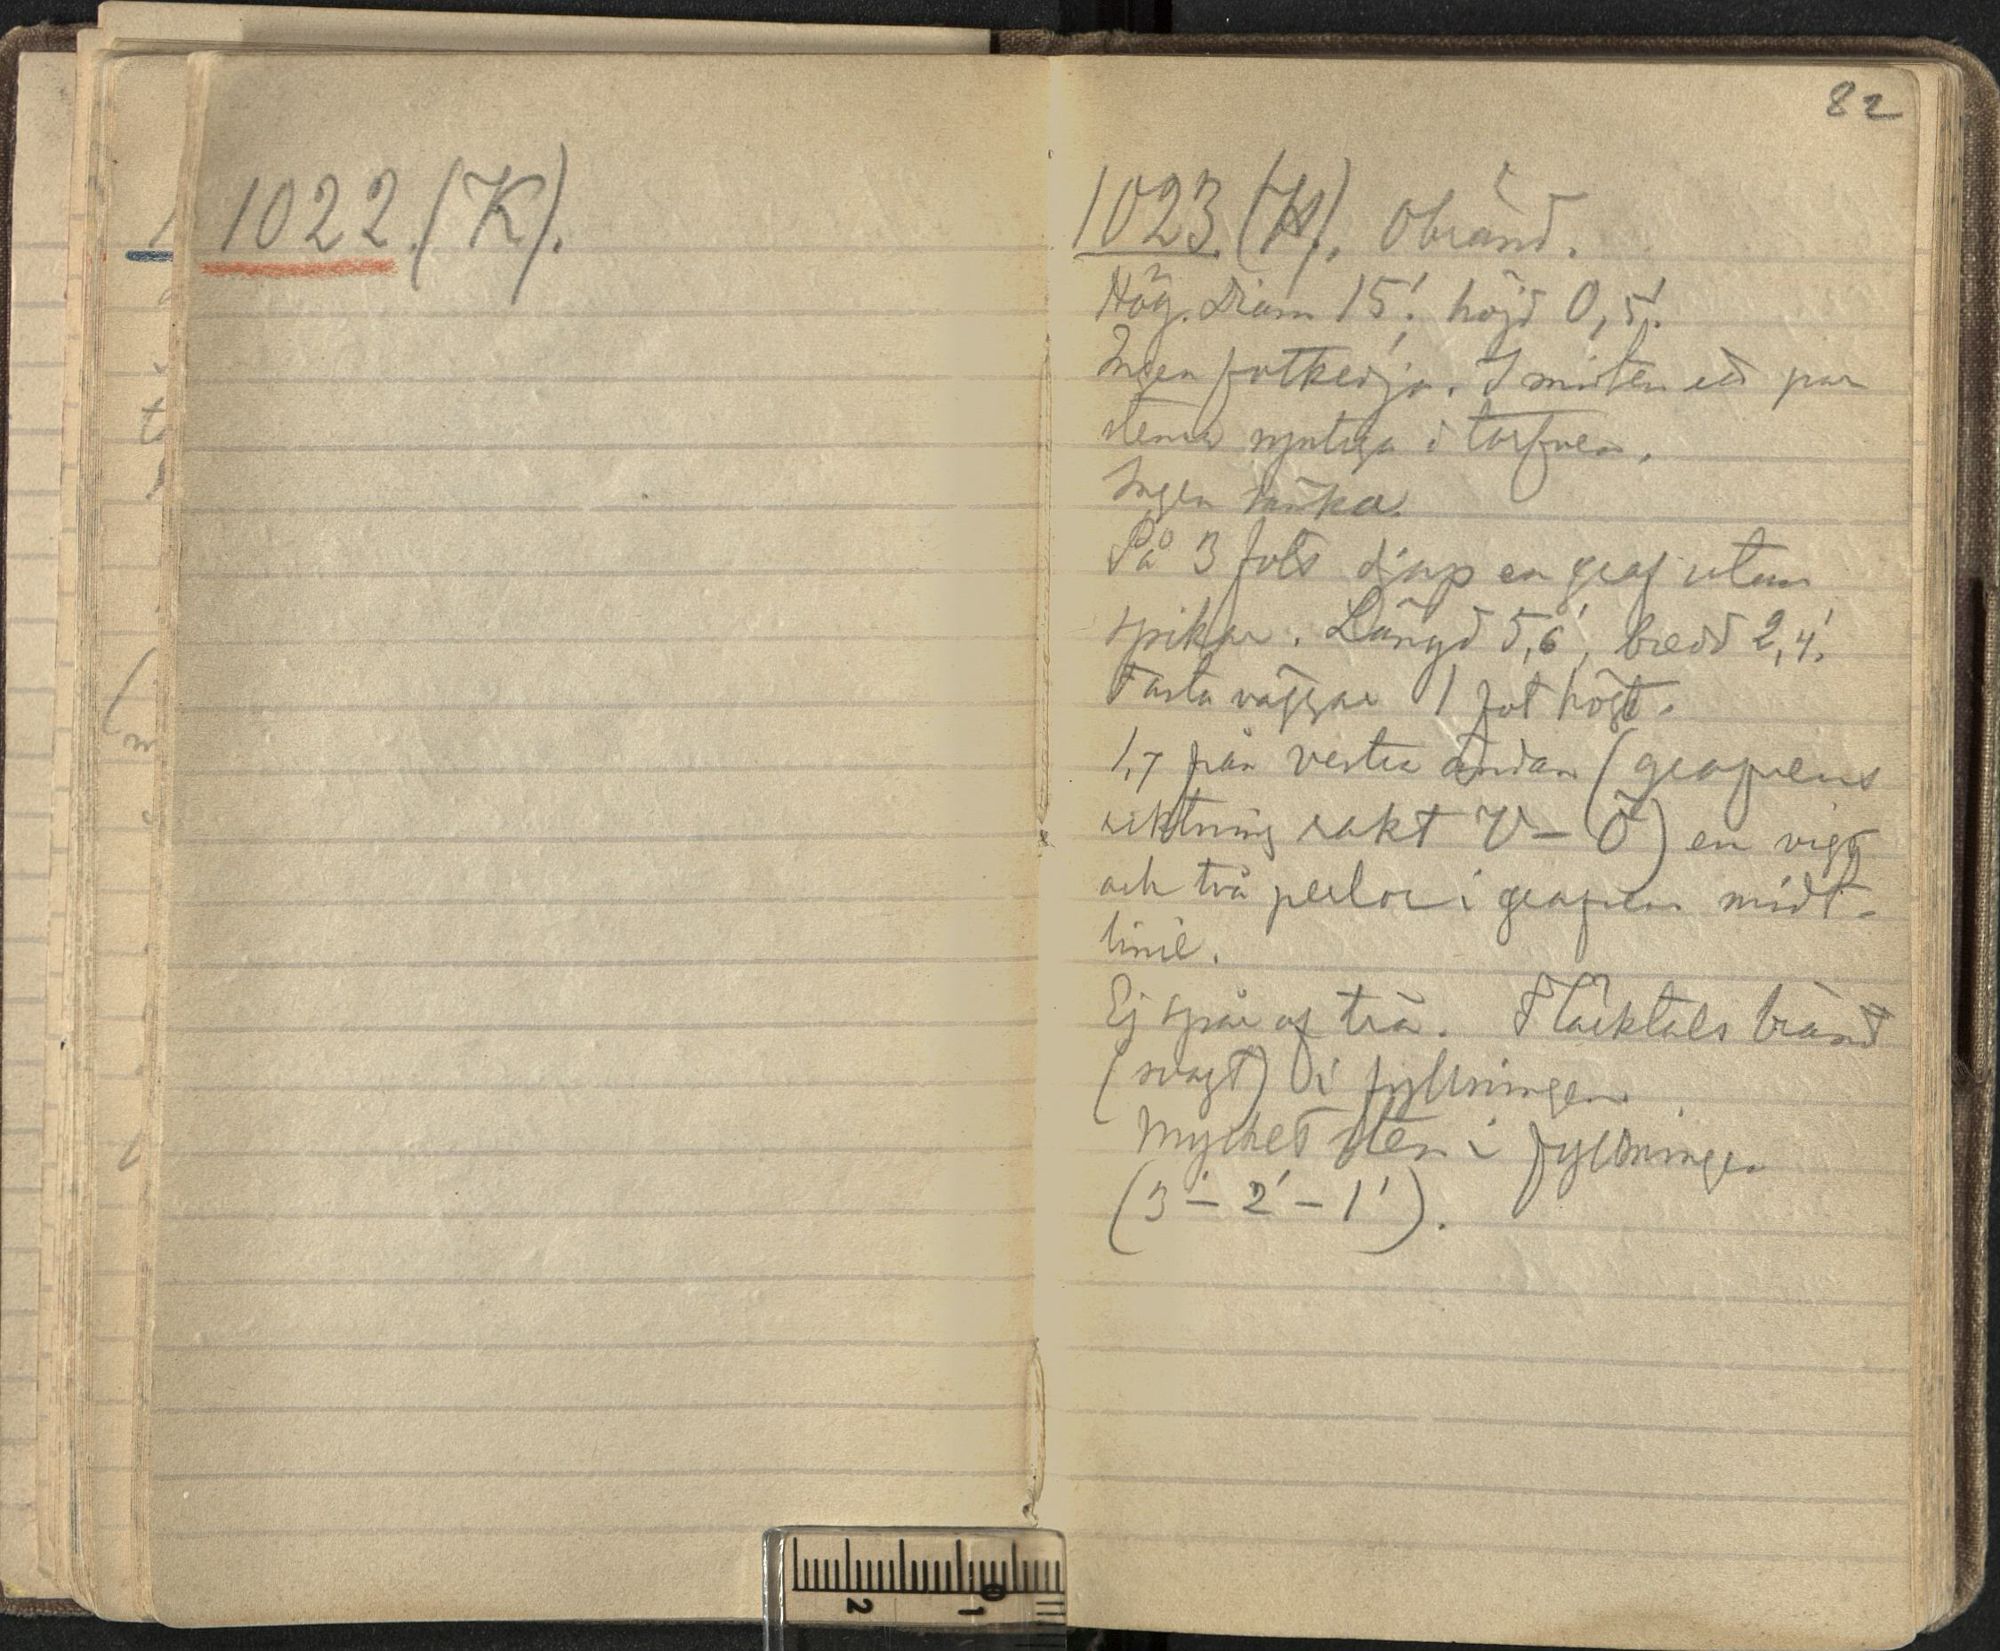 1022. (K).
82
1023. (H). Obränd.
Hög. Diam 15'. höjd 0,5'.
Ingen fotkedja. I midten ett par
stenar synliga i torfven.
Ingen
På 3 fots djup en graf utan
spikar. Längd 5,6', bredd 2,4'.
Fasta väggar 1 fot högt.
1,7 från vestra ändan (grafvens
riktning rakt V – Ö) en vigt
och två perlor i grafvens midt-
linie.
Ej spår af trä. Fläcktals bränd
(svagt) i fyllningen
Mycket sten i fyllningen
(3' – 2' – 1').
2 1 0